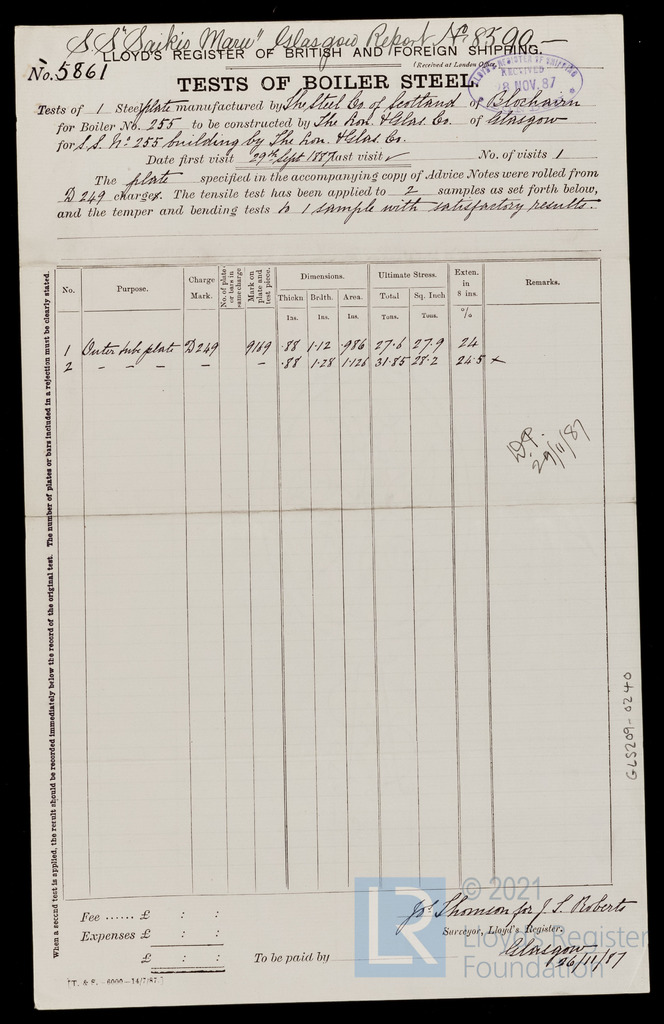 S.S. "Saikio Maru" Glasgow Report No 8590-
LLOYD'S REGISTER OF BRITISH AND FOREIGN SHIPPING.
No. 5861
(Received at London Office
LLOYD'S REGISTER OF SHIPPING
RECEIVED
28 NOV. 87
TESTS OF BOILER STEEL.
Tests of 1 Steel plate manufactured by The Steel Co. of Scotland of Blochairn
for Boiler No. 255 to be constructed by The Lon. & Glas. Co. of Glasgow
for S.S. No 255 building by The Lon. & Glas. Co.
Date first visit 29th Sept 1887 last visit ✓ No. of visits 1
The plate specified in the accompanying copy of Advice Notes were rolled from
D 249 charges. The tensile test has been applied to 2 samples as set forth below,
and the temper and bending tests to 1 sample with satisfactory results.
No. Purpose. Charge Mark. No. of plates or bars in same charge Mark on plate and test piece. Dimensions. Ultimate Stress. Exten. in 8 ins. Remarks.
Thickn Brdth. Area. Total Sq. Inch
Ins. Ins. Ins. Tons. Tons. %
1 Outer tube plate D249 9169 .88 1.12 .986 27.6 27.9 24
2 - - - - - .88 1.28 1.126 31.85 28.2 24.5 x
29/11/87
When a second test is applied, the result should be recorded immediately below the record of the original test. The number of plates or bars included in a rejection must be clearly stated.
GLS209-0240
Fee ...... £ : :
Expenses £ : :
£ : :
To be paid by
Jos. Thomson for J. S. Roberts
Surveyor, Lloyd's Register.
Glasgow
26/11/87
[T. & S. -6000-14/7/87.]
LR
© 2021
Lloyd's Register
Foundation